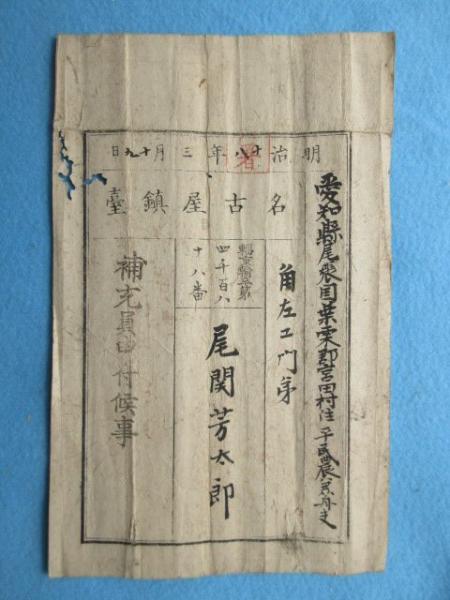 明治十八年三月十九日
名古屋鎮臺
愛知縣尾張国葉栗郡宮田村住平民農
角左エ門弟
四千百八
十八番
尾関芳太郎
補充員申付候事